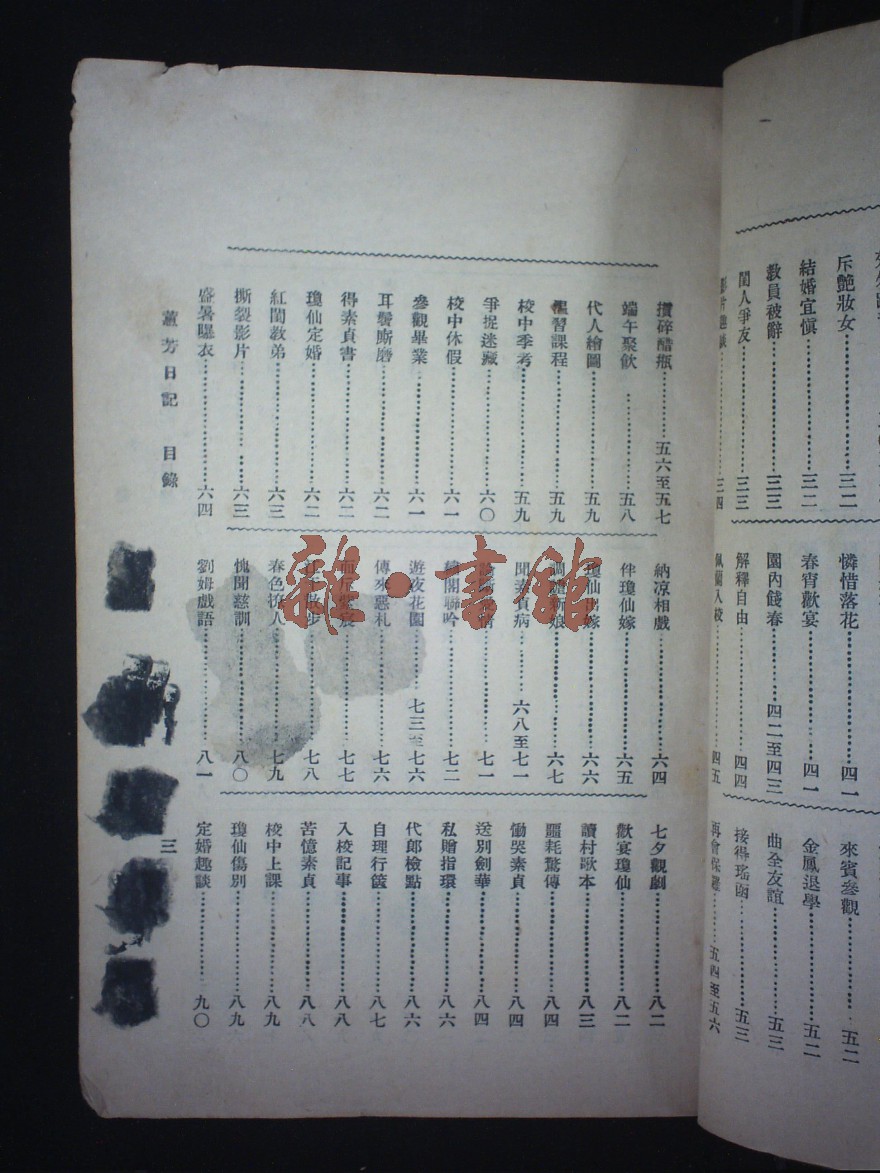 斥艷妝女………三二
結婚宜愼………三二
教員被辭………三三
閨人爭友………三三
三四
憐惜落花………四一
春宵歡宴………四一
園內餞春………四二至四三
解釋自由………四四
入校………四五
來賓參觀………五二
金鳳退學………五二
曲全友誼………五三
接得瑤函………五三
再會保………五四至五六
攢碎醋瓶………五六至五七
端午聚飮………五八
代人繪圖………五九
溫習課程………五九
校中季考………五九
爭捉迷藏………六〇
校中休假………六一
參觀畢業………六一
耳鬢廝磨………六二
得素貞書………六二
瓊仙定婚………六二
紅閨教弟………六三
撕裂影片………六三
盛暑曝衣………六四
納凉相戲………六四
伴瓊仙嫁………六五
瓊仙出嫁………六六
新娘………六七
聞素貞病………六八至七一
七一
閣聯吟………七二
遊夜花園………七三至七六
傳來惡札………七六
七七
散步………七八
春色撩人………七九
愧聞慈訓………八〇
劉姆戲語………八一
七夕觀劇………八二
歡宴瓊仙………八二
讀村歌本………八三
噩耗驚傳………八四
慟哭素貞………八四
送別劍華………八四
私贈指環………八六
代郎檢點………八六
自理行篋………八七
入校記事………八八
苦憶素貞………八八
校中上課………八九
瓊仙傷別………八九
定婚趣談………九〇
蕙芳日記 目錄
三
雜·書館